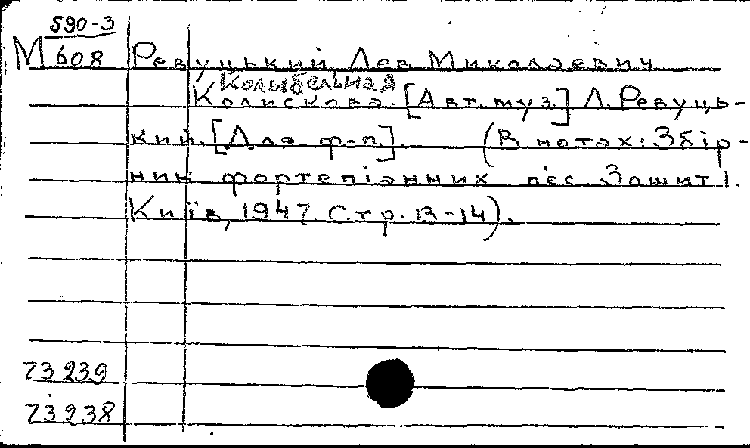 590-3
М 608 Ревуцький, Лев Миколаевич
Колыбельная
Колискова. [Авт. муз.] Л. Ревуць-
кий. [Для ф-п]. (В нотах: Збір-
ник фортепіанних п'єс. Зошит 1.
Київ, 1947. Стр. 13-14).
73239
73238